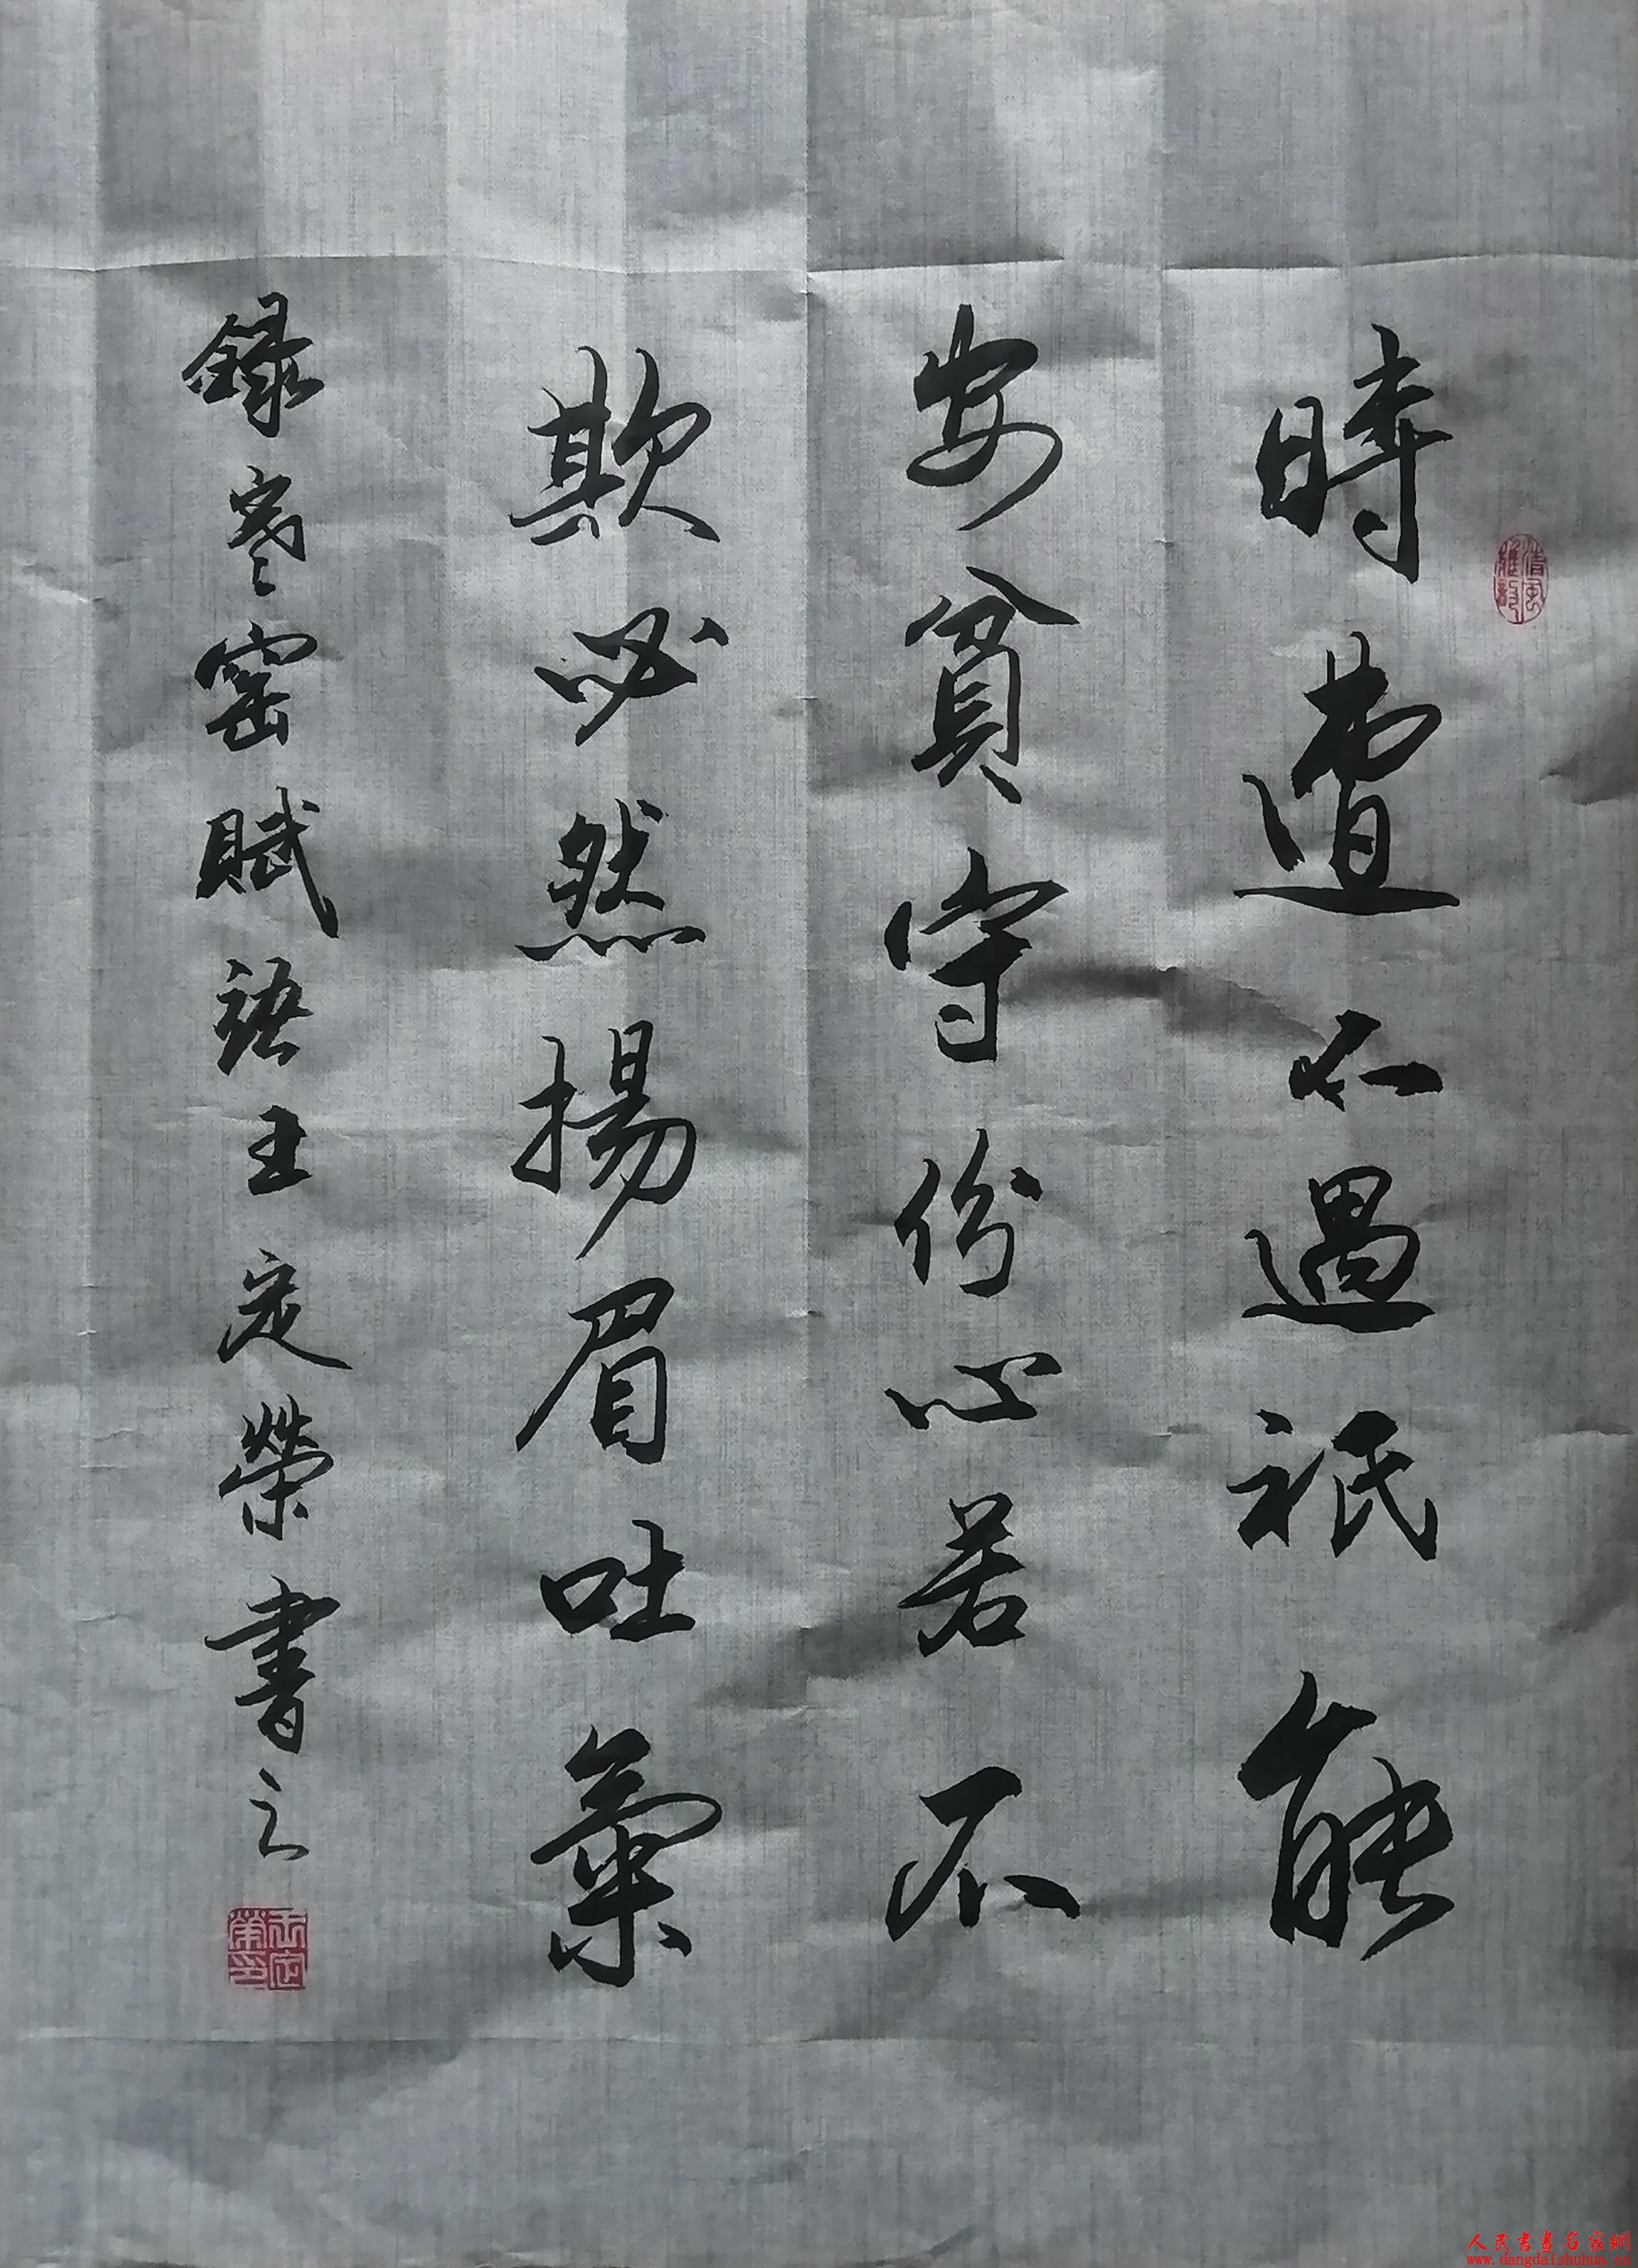 時遭不遇祇能
安貧守份心若不
欺必然揚眉吐氣
録寒窑賦語王定榮書之
清風雅韵
王定榮印
人民書畫名家網
www.dangdaishuhua.cn